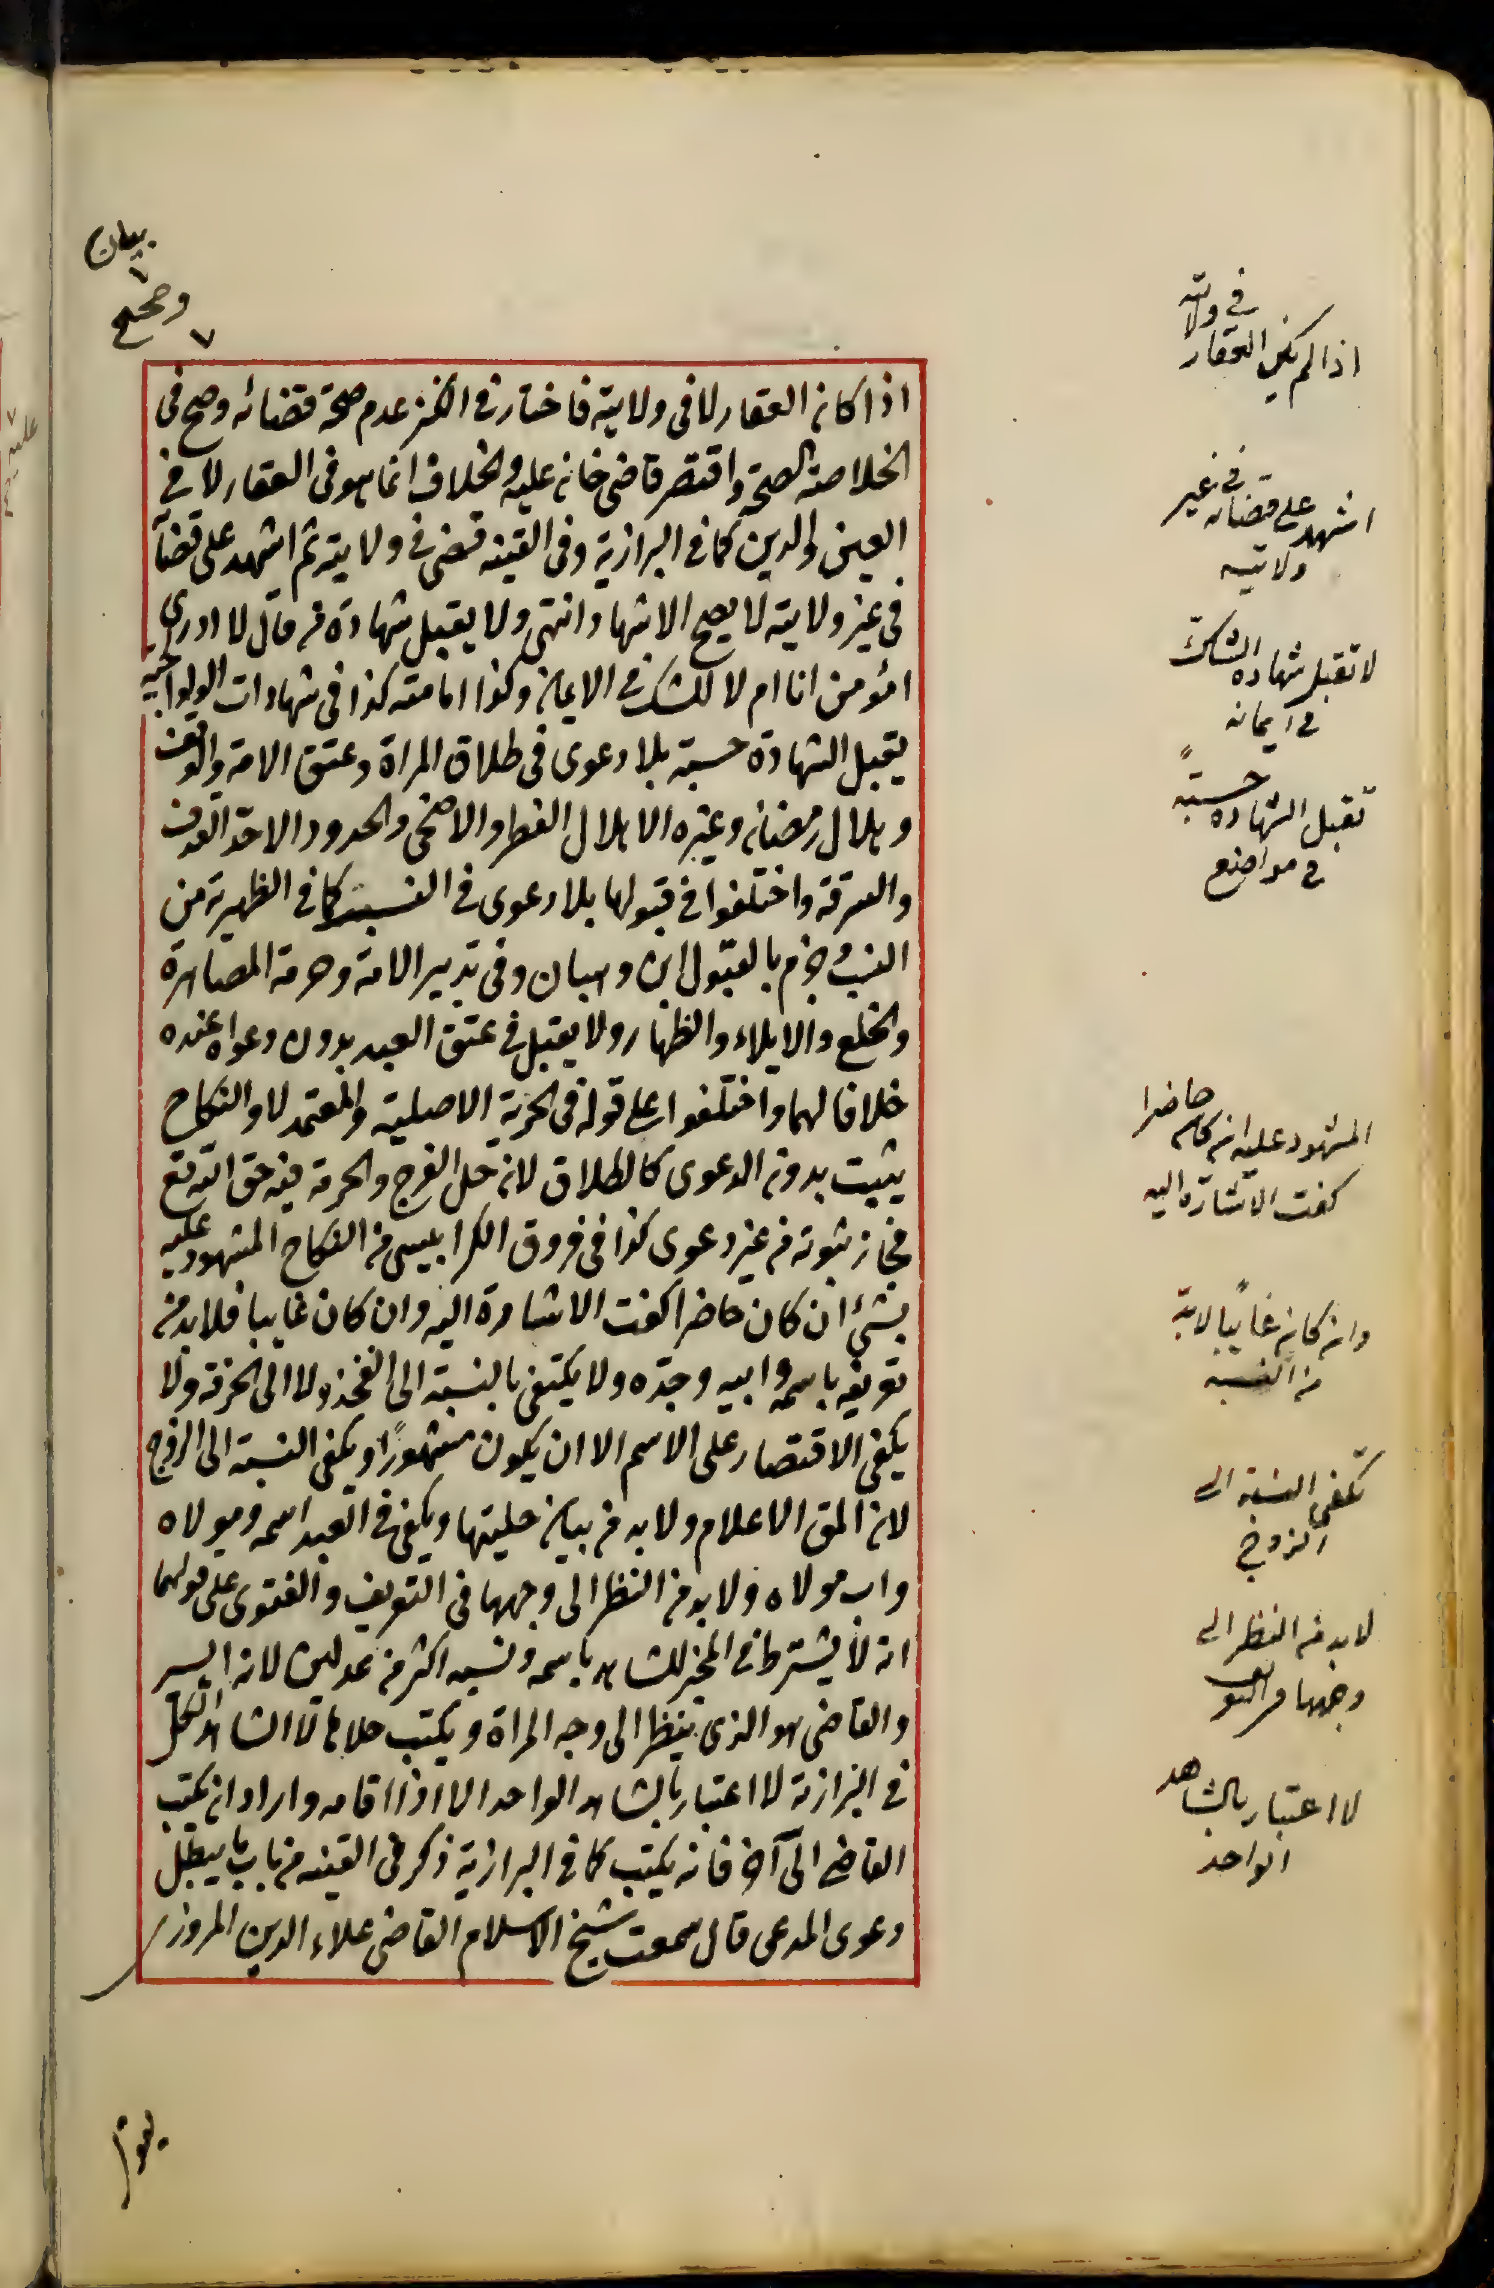 بيان
وصحح
اذا كان العقار لا فى ولايته فاختار فى الكنز عدم صحة قضائه وصح فى
الخلاصة الصحة واقتصر قاضى خان عليه والخلاف انما هو فى العقار لا فى
العين والدين كما فى البزازية وفى القنية قضى فى ولايته ثم اشهد على قضائه
فى غير ولايته لا يصح الاشهاد انتهى ولا يقبل شهادة من قال لا ادرى
امؤمن انا ام لا للشك فى الايمان وكذا امامته كذا فى شهادات الولوالجية
يقبل الشهادة حسبة بلا دعوى فى طلاق المراة وعتق الامة والوقف
وهلال رمضان وغيره الا هلال الفطر والاضحى والحدود الا حد القذف
والسرقة واختلفوا فى قبولها بلا دعوى فى النسب كما فى الظهيرية من
النسب وجزم بالقبول ابن وهبان وفى تدبير الامة وحرمة المصاهرة
والخلع والايلاء والظهار ولا يقبل فى عتق العبد بدون دعواه عنده
خلافا لهما واختلفوا على قوله فى الحرية الاصلية والمعتمد لا والنكاح
يثبت بدون الدعوى كالطلاق لان حل الفرج والحرمة فيه حق الله تع
فجاز ثبوته من غير دعوى كذا فى فروق الكرابيسى من النكاح المشهود عليه
بشئ ان كان حاضرا كفت الاشارة اليه وان كان غايبا فلا بد من
تعريفه باسمه وابيه وجده ولا يكتفى بالنسبة الى الفخذ ولا الى الحرفة ولا
يكفى الاقتصار على الاسم الا ان يكون مشهورًا ويكفى النسبة الى الزوج
لان المق الاعلام ولا بد من بيان حليتها ويكفى فى العبد اسمه ومولاه
واب مولاه ولا بد من النظر الى وجهها فى التعريف والفتوى على قولهما
انه لا يشترط فى المخبر للشاهد باسمه ونسبه اكثر من عدلين لانه ايسر
والقاضى هو الذى ينظر الى وجه المراة ويكتب حلاها لا الشاهد الكل
فى البزازية لا اعتبار بالشاهد الواحد الا اذا اقامه واراد ان يكتب
القاضى الى آخر فانه يكتب كما فى البزازية ذكر فى القنية من باب ما يبطل
دعوى المدعى قال سمعت شيخ الاسلام القاضى علاء الدين المروزى
يقول
اذا لم يكن العقار
فى ولايته
اشهد على قضائه فى غير
ولايته
لا تقبل شهادة الشاك
فى ايمانه
تقبل الشهادة حسبةً
فى مواضع
المشهود عليه ان كان حاضرا
كفت الاشارة اليه
وان كان غائبًا لا بد
من النسبة
تكفى النسبة الى
الزوج
لا بد من النظر الى
وجهها فى التعريف
لا اعتبار بالشاهد
الواحد